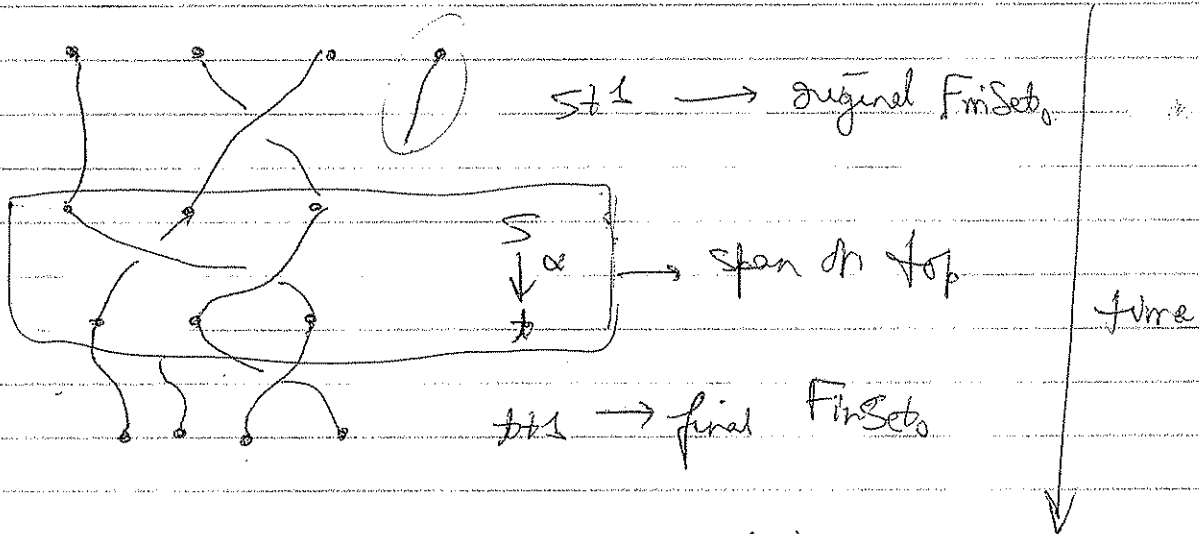 S+1 → original FinSet₀
S
↓ α
t
→ span on top
time
t+1 → final FinSet₀